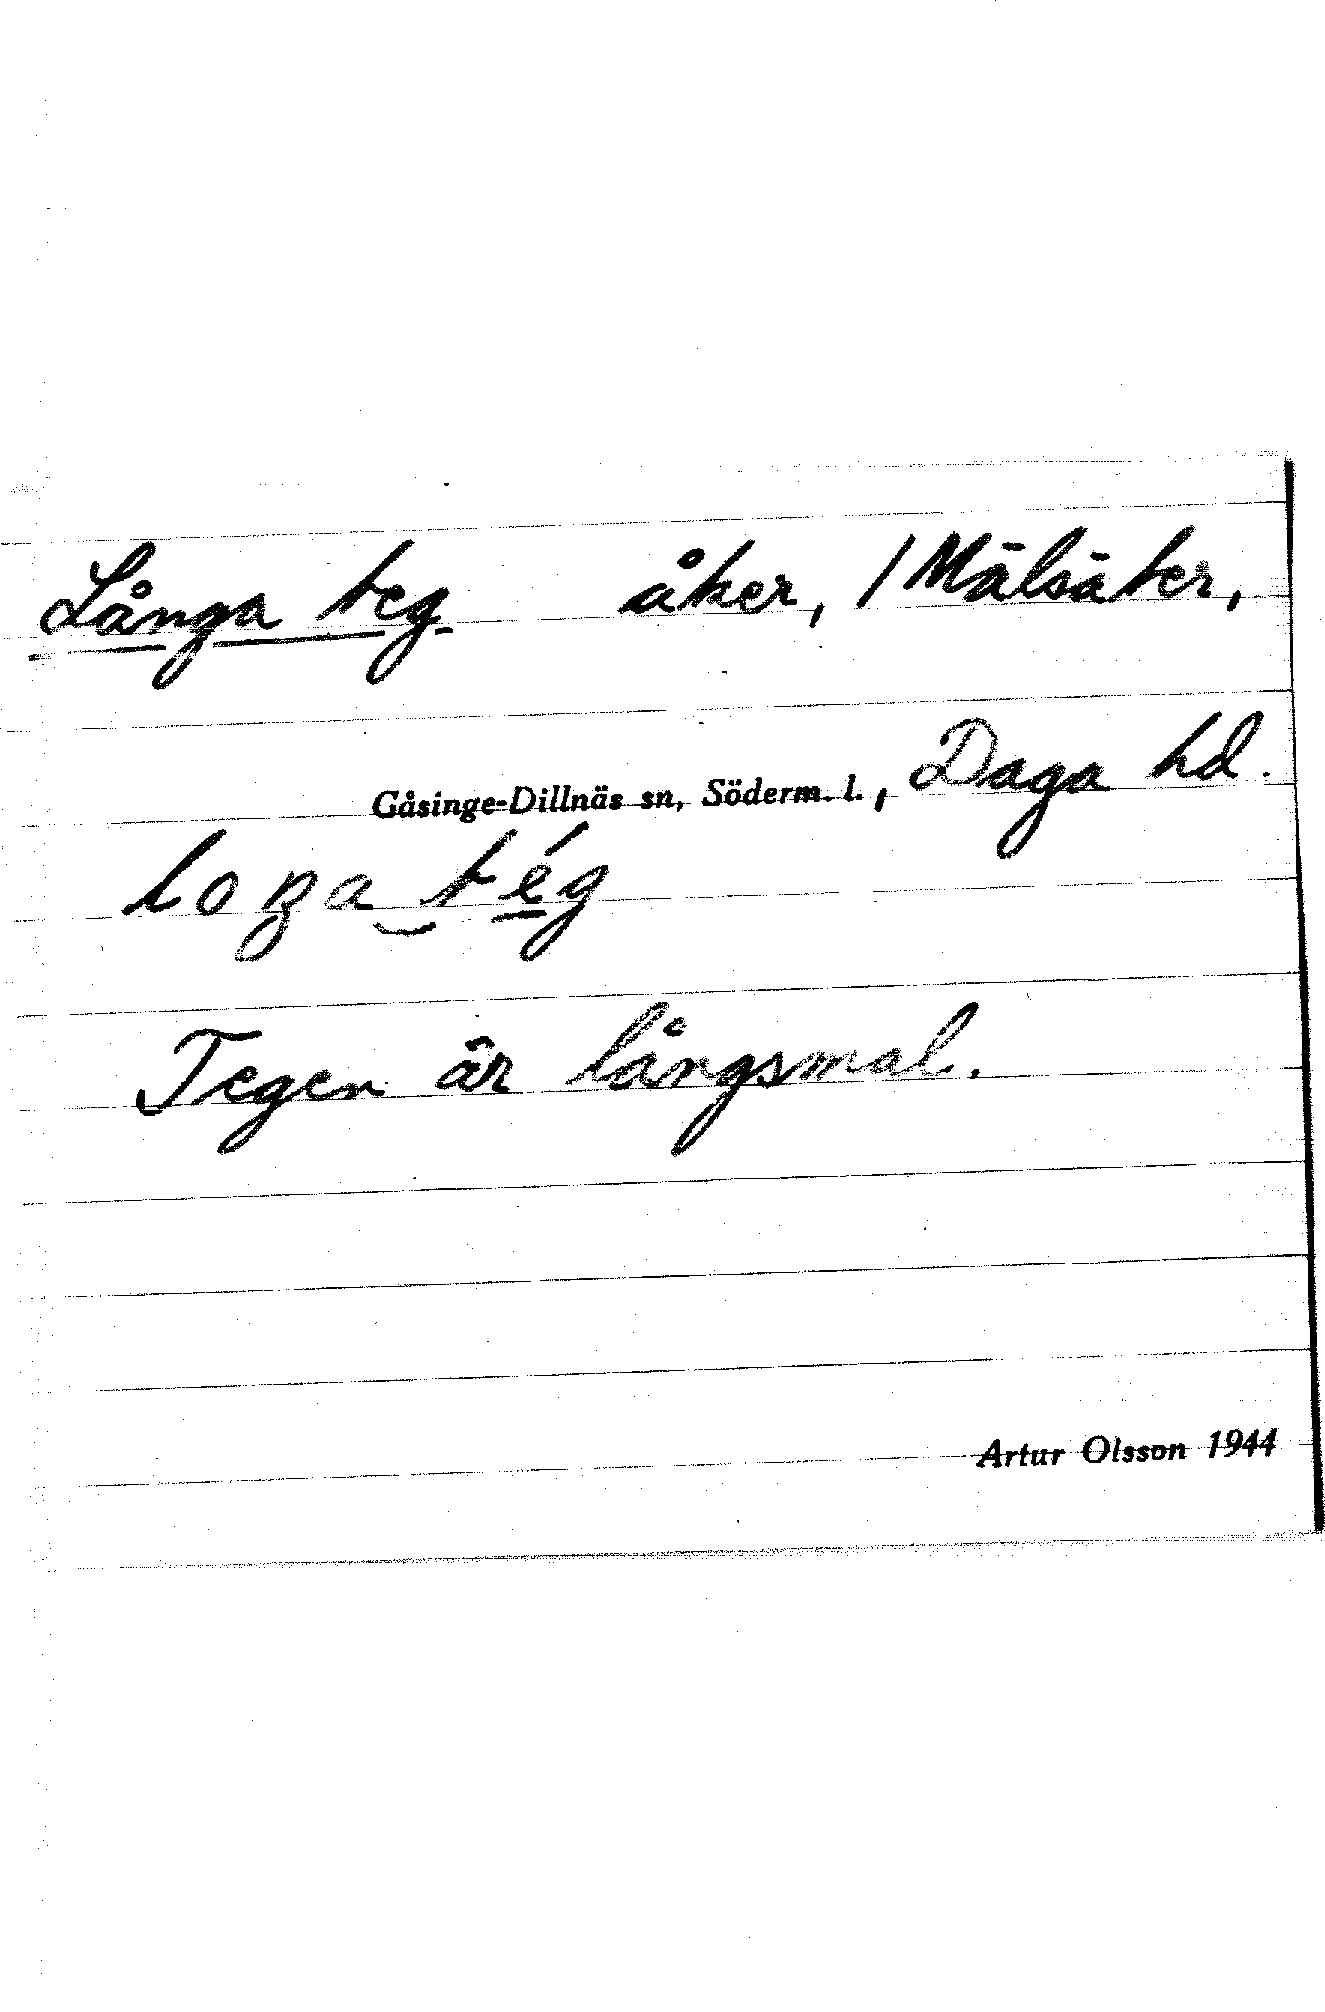 Långa teg åker, / Mälsäter,
Gåsinge-Dillnäs sn, Söderm. l., Daga hd.
loŋa‿tég
Tegen är långsmal.
Artur Olsson 1944